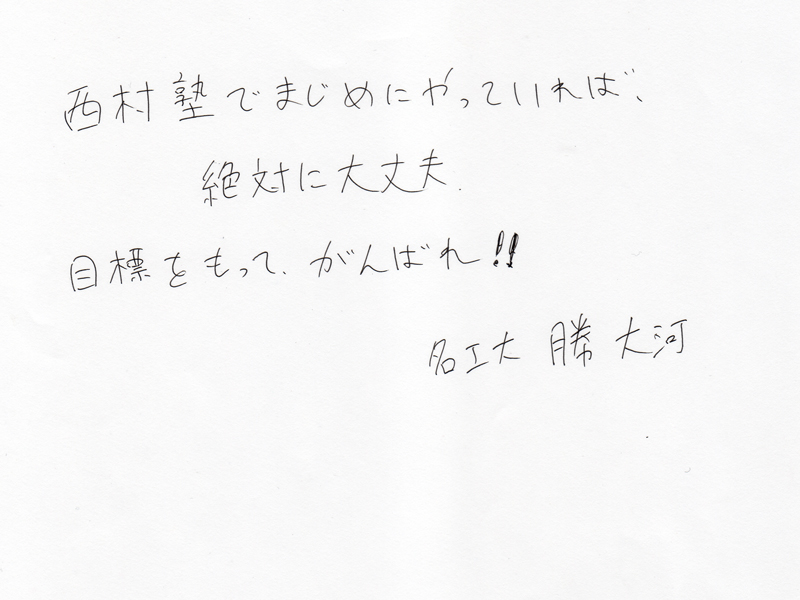 西村塾でまじめにやっていれば、
絶対に大丈夫.
目標をもって、がんばれ!!
名工大 勝 大河